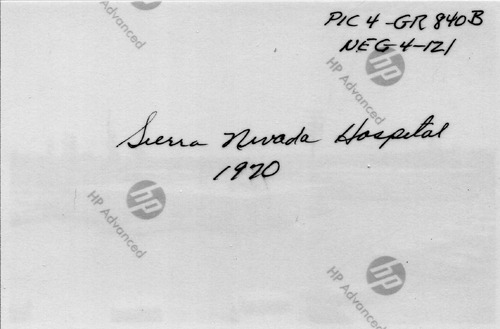 PIC 4-GR 840B
NEG 4-121
Sierra Nevada Hospital
1970
hp
HP Advanced
hp
HP Advanced
hp
HP Advanced
hp
HP Advanced